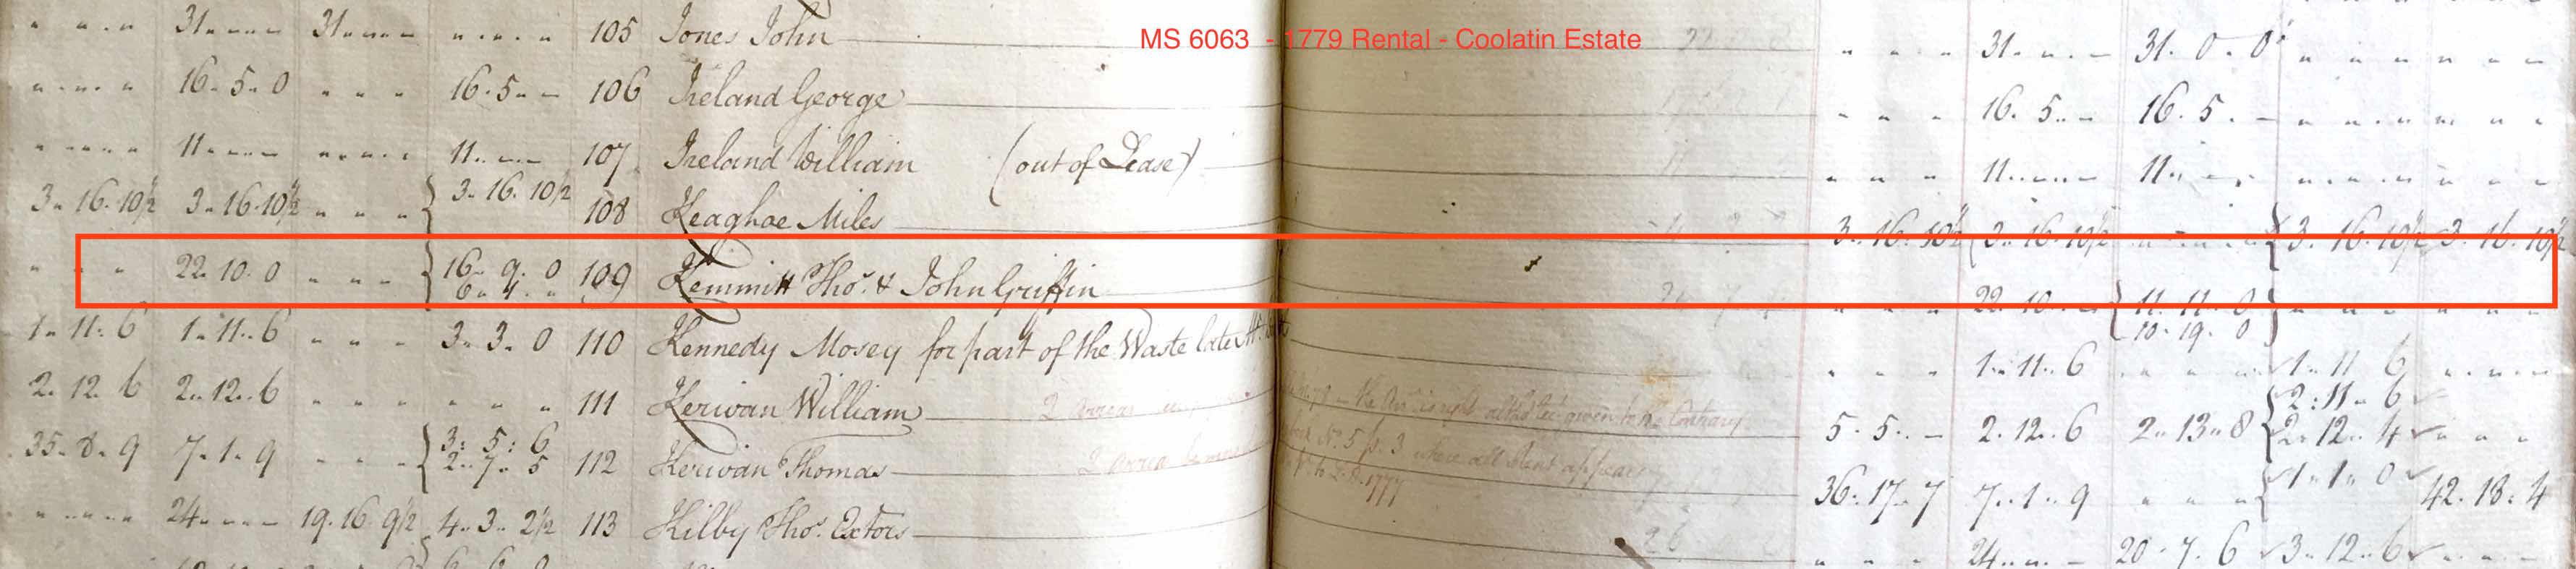 MS 6063 - 1779 Rental - Coolatin Estate
31 31 105 Jones John 31 31. 0. 0
16. 5. 0 16. 5 106 Ireland George 16. 5 16. 5
11 11 107 Ireland William (out of Lease) 11 11
3. 16. 10½ 3. 16. 10½ { 3. 16. 10½ 108 Keaghoe Miles 3. 16. 10½ 3. 16. 10½ { 3. 16. 10½ 3. 16. 10½
22. 10. 0 { 16. 9. 0 109 Kemmitt Thos. & John Griffin 22. 10 { 11. 11. 0 }
10. 19. 0
1. 11. 6 1. 11. 6 3. 3. 0 110 Kennedy Mosey for part of the Waste late 1. 11. 6 1. 11. 6
2. 12. 6 2. 12. 6 111 Kerivan William 5. 5 2. 12. 6 2. 13. 8 { 2: 11. 6
2. 12. 4
35. 8. 9 7. 1. 9 { 3: 5: 6
2. 7. 5 112 Kerivan Thomas 36. 17. 7 7. 1. 9 { 1. 1. 0 42. 18: 4
24 19. 16. 9½ 4. 3. 2½ 113 Kilby Thos. Extors 26 24 20. 7. 6 3. 12. 6